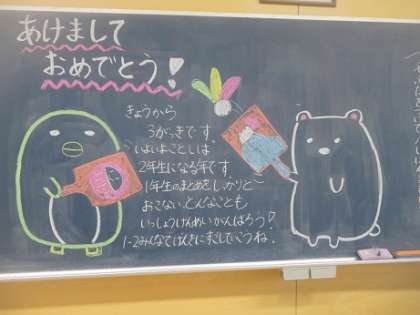 あけまして
おめでとう!
きょうから
3がっきです。
いよいよことしは
2年生になる年です。
1年生のまとめをしっかりと
おこない、どんなことも
いっしょうけんめいがんばろう!
1-2みんなでげんきにすごしていこうね。